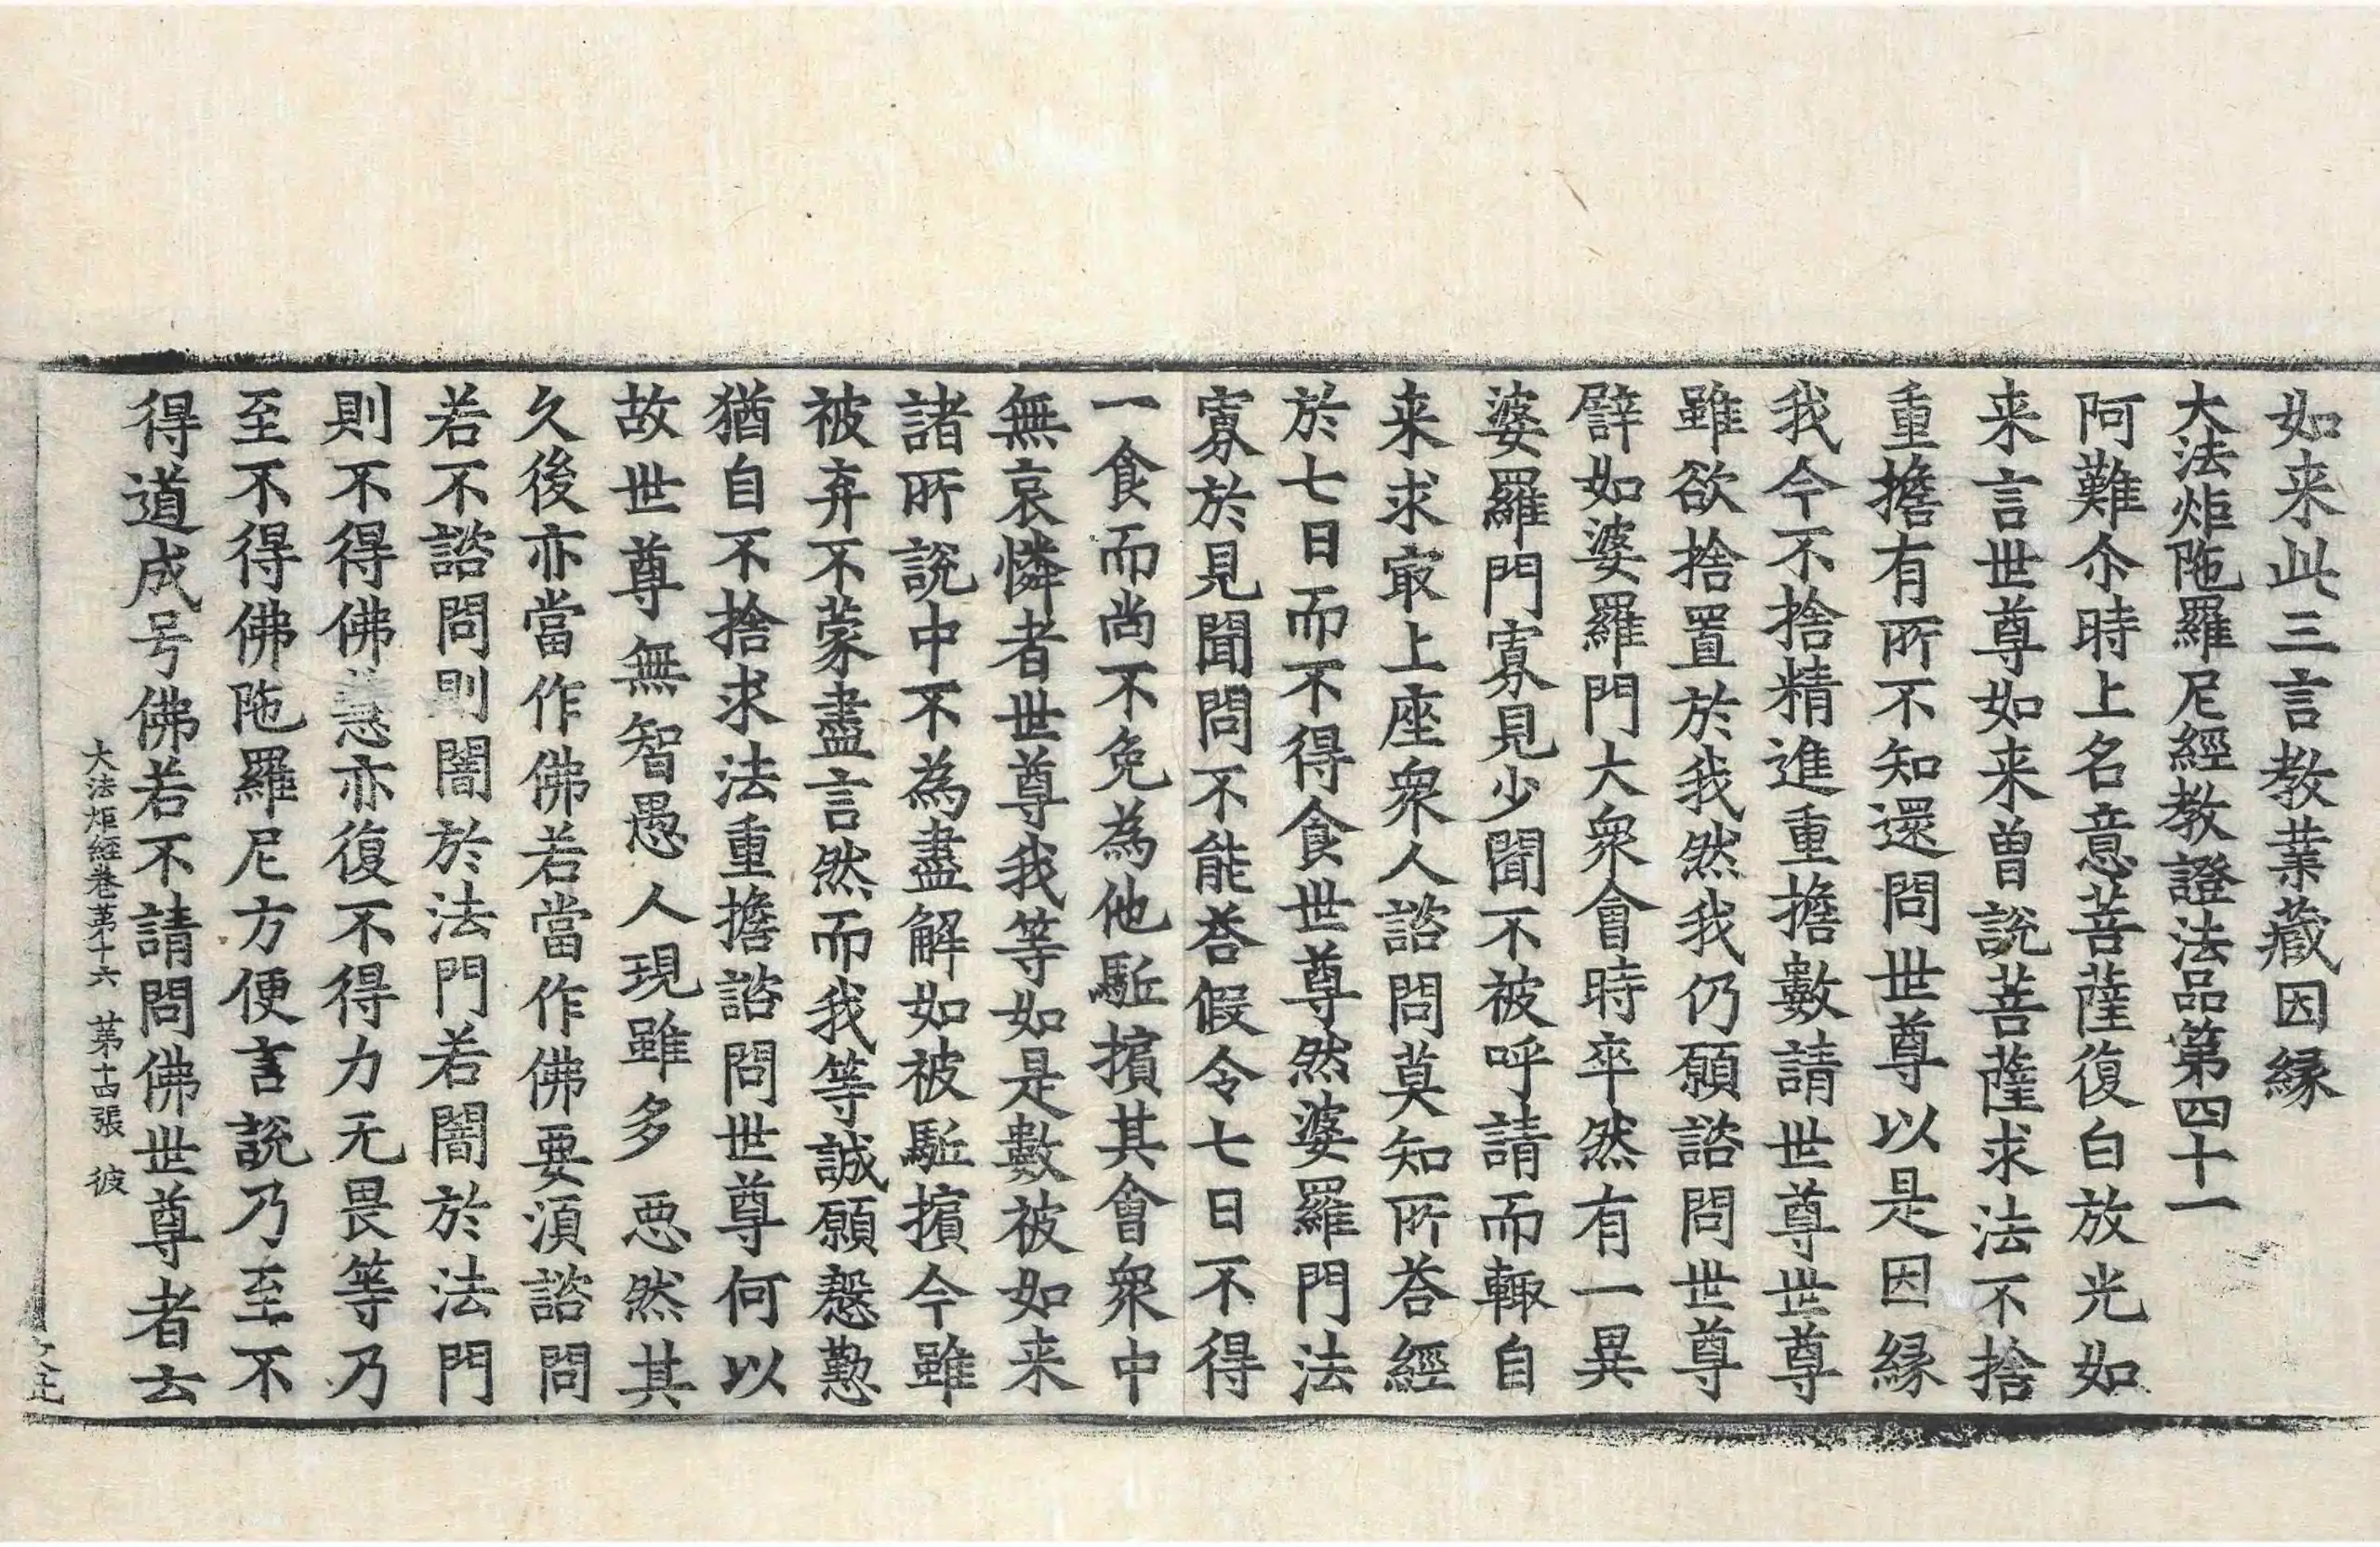 如来此三言教業藏因縁
大法炬陁羅尼經教證法品第四十一
阿難尒時上名意菩薩復白放光如
来言世尊如来曽説菩薩求法不捨
重擔有所不知還問世尊以是因縁
我今不捨精進重擔數請世尊世尊
雖欲捨置於我然我仍願諮問世尊
譬如婆羅門大衆會時卒然有一異
婆羅門寡見少聞不被呼請而輙自
来求㝡上座衆人諮問莫知所荅經
於七日而不得食世尊然婆羅門法
寡於見聞問不能荅假令七日不得
一食而尚不免為他駈擯其會衆中
無哀憐者世尊我等如是數被如来
諸所説中不為盡解如被駈擯今雖
被弃不蒙盡言然而我等誠願慇懃
猶自不捨求法重擔諮問世尊何以
故世尊無智愚人現雖多惡然其
久後亦當作佛若當作佛要湏諮問
若不諮問則闇於法門若闇於法門
則不得佛慧亦復不得力无畏等乃
至不得佛陁羅尼方便言説乃至不
得道成号佛若不請問佛世尊者去
大法炬經卷苐十六 苐十四張 彼